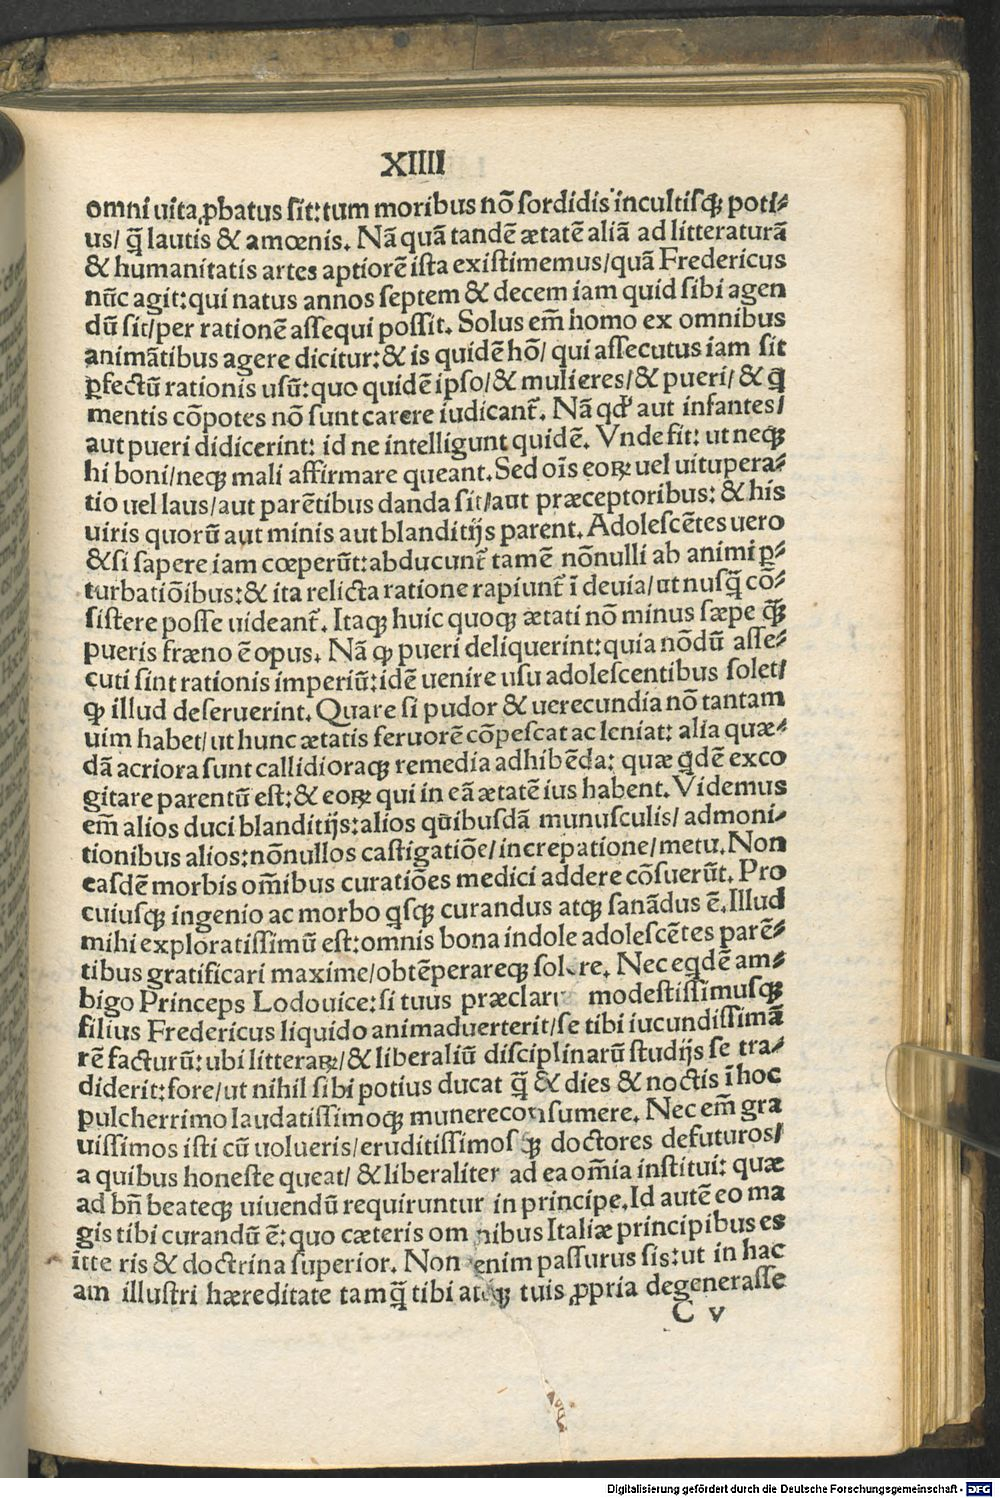 XIIII
omni uita ꝓbatus ſit:tum moribus nõ ſordidis incultiſqꝫ poti⸗
us/ q̃ lautis & amœnis. Nã quã tandẽ ætatẽ aliã ad litteraturã
& humanitatis artes aptiorẽ iſta exiſtimemus/quã Fredericus
nũc agit:qui natus annos ſeptem & decem iam quid ſibi agen
dũ ſit/per rationẽ aſſequi poſſit. Solus em̃ homo ex omnibus
animãtibus agere dicitur:& is quidẽ hõ/ qui aſſecutus iam ſit
ꝑfectũ rationis uſũ:quo quidẽ ipſo/& mulieres/& pueri/ & q̃
mentis cõpotes nõ ſunt carere iudicant̃. Nã qđ aut infantes/
aut pueri didicerint: id ne intelligunt quidẽ. Vnde fit: ut neqꝫ
hi boni/neqꝫ mali affirmare queant. Sed oĩs eoꝝ uel uitupera⸗
tio uel laus/aut parẽtibus danda ſit/aut præceptoribus: & his
uiris quorũ aut minis aut blanditijs parent. Adoleſcẽtes uero
&ſi ſapere iam cœperũt:abducunt̃ tamẽ nõnulli ab animi ꝑ⸗
turbatiõibus:& ita relicta ratione rapiunt̃ ĩ deuia/ut nuſq̃ cõ⸗
ſiſtere poſſe uideant̃. Itaqꝫ huic quoqꝫ ætati nõ minus ſæpe q̃ꝫ
pueris fræno ẽ opus. Nã ꝙ pueri deliquerint:quia nõdũ aſſe⸗
cuti ſint rationis imperiũ:idẽ uenire uſu adoleſcentibus ſolet/
ꝙ illud deſeruerint. Quare ſi pudor & uerecundia nõ tantam
uim habet/ut hunc ætatis feruorẽ cõpeſcat ac leniat: alia quæ⸗
dã acriora ſunt callidioraqꝫ remedia adhibẽda: quæ q̃dẽ exco
gitare parentũ eſt:& eoꝝ qui in eã ætatẽ ius habent. Videmus
em̃ alios duci blanditijs:alios quibuſdã munuſculis/ admoni⸗
tionibus alios:nõnullos caſtigatiõe/increpatione/metu. Non
eaſdẽ morbis om̃ibus curatiões medici addere cõſuerũt. Pro
cuiuſqꝫ ingenio ac morbo q̃ſqꝫ curandus atqꝫ ſanãdus ẽ. Illud
mihi exploratiſſimũ eſt:omnis bona indole adoleſcẽtes parẽ⸗
tibus gratificari maxime/obtẽperareqꝫ ſolere. Nec eq̃dẽ am⸗
bigo Princeps Lodouice:ſi tuus præclarus modeſtiſſimuſqꝫ
filius Fredericus liquido animaduerterit/ſe tibi iucundiſſimã
rẽ facturũ:ubi litteraꝝ/& liberaliũ diſciplinarũ ſtudijs ſe tra⸗
diderit:fore/ut nihil ſibi potius ducat q̃ & dies & noctis ĩ hoc
pulcherrimo laudatiſſimoqꝫ munere conſumere. Nec em̃ gra
uiſſimos iſti cũ uolueris/eruditiſſimoſqꝫ doctores defuturos/
a quibus honeſte queat/ & liberaliter ad ea om̃ia inſtitui: quæ
ad bñ beateqꝫ uiuendũ requiruntur in principe. Id autẽ eo ma
gis tibi curandũ ẽ:quo cæteris omnibus Italiæ principibus es
ĩtteris & doctrina ſuperior. Non enim paſſurus ſis:ut in hac
am illuſtri hæreditate tamq̃ tibi atqꝫ tuis ꝓpria degeneraſſe
C v
Digitalisierung gefördert durch die Deutsche Forschungsgemeinschaft - DFG